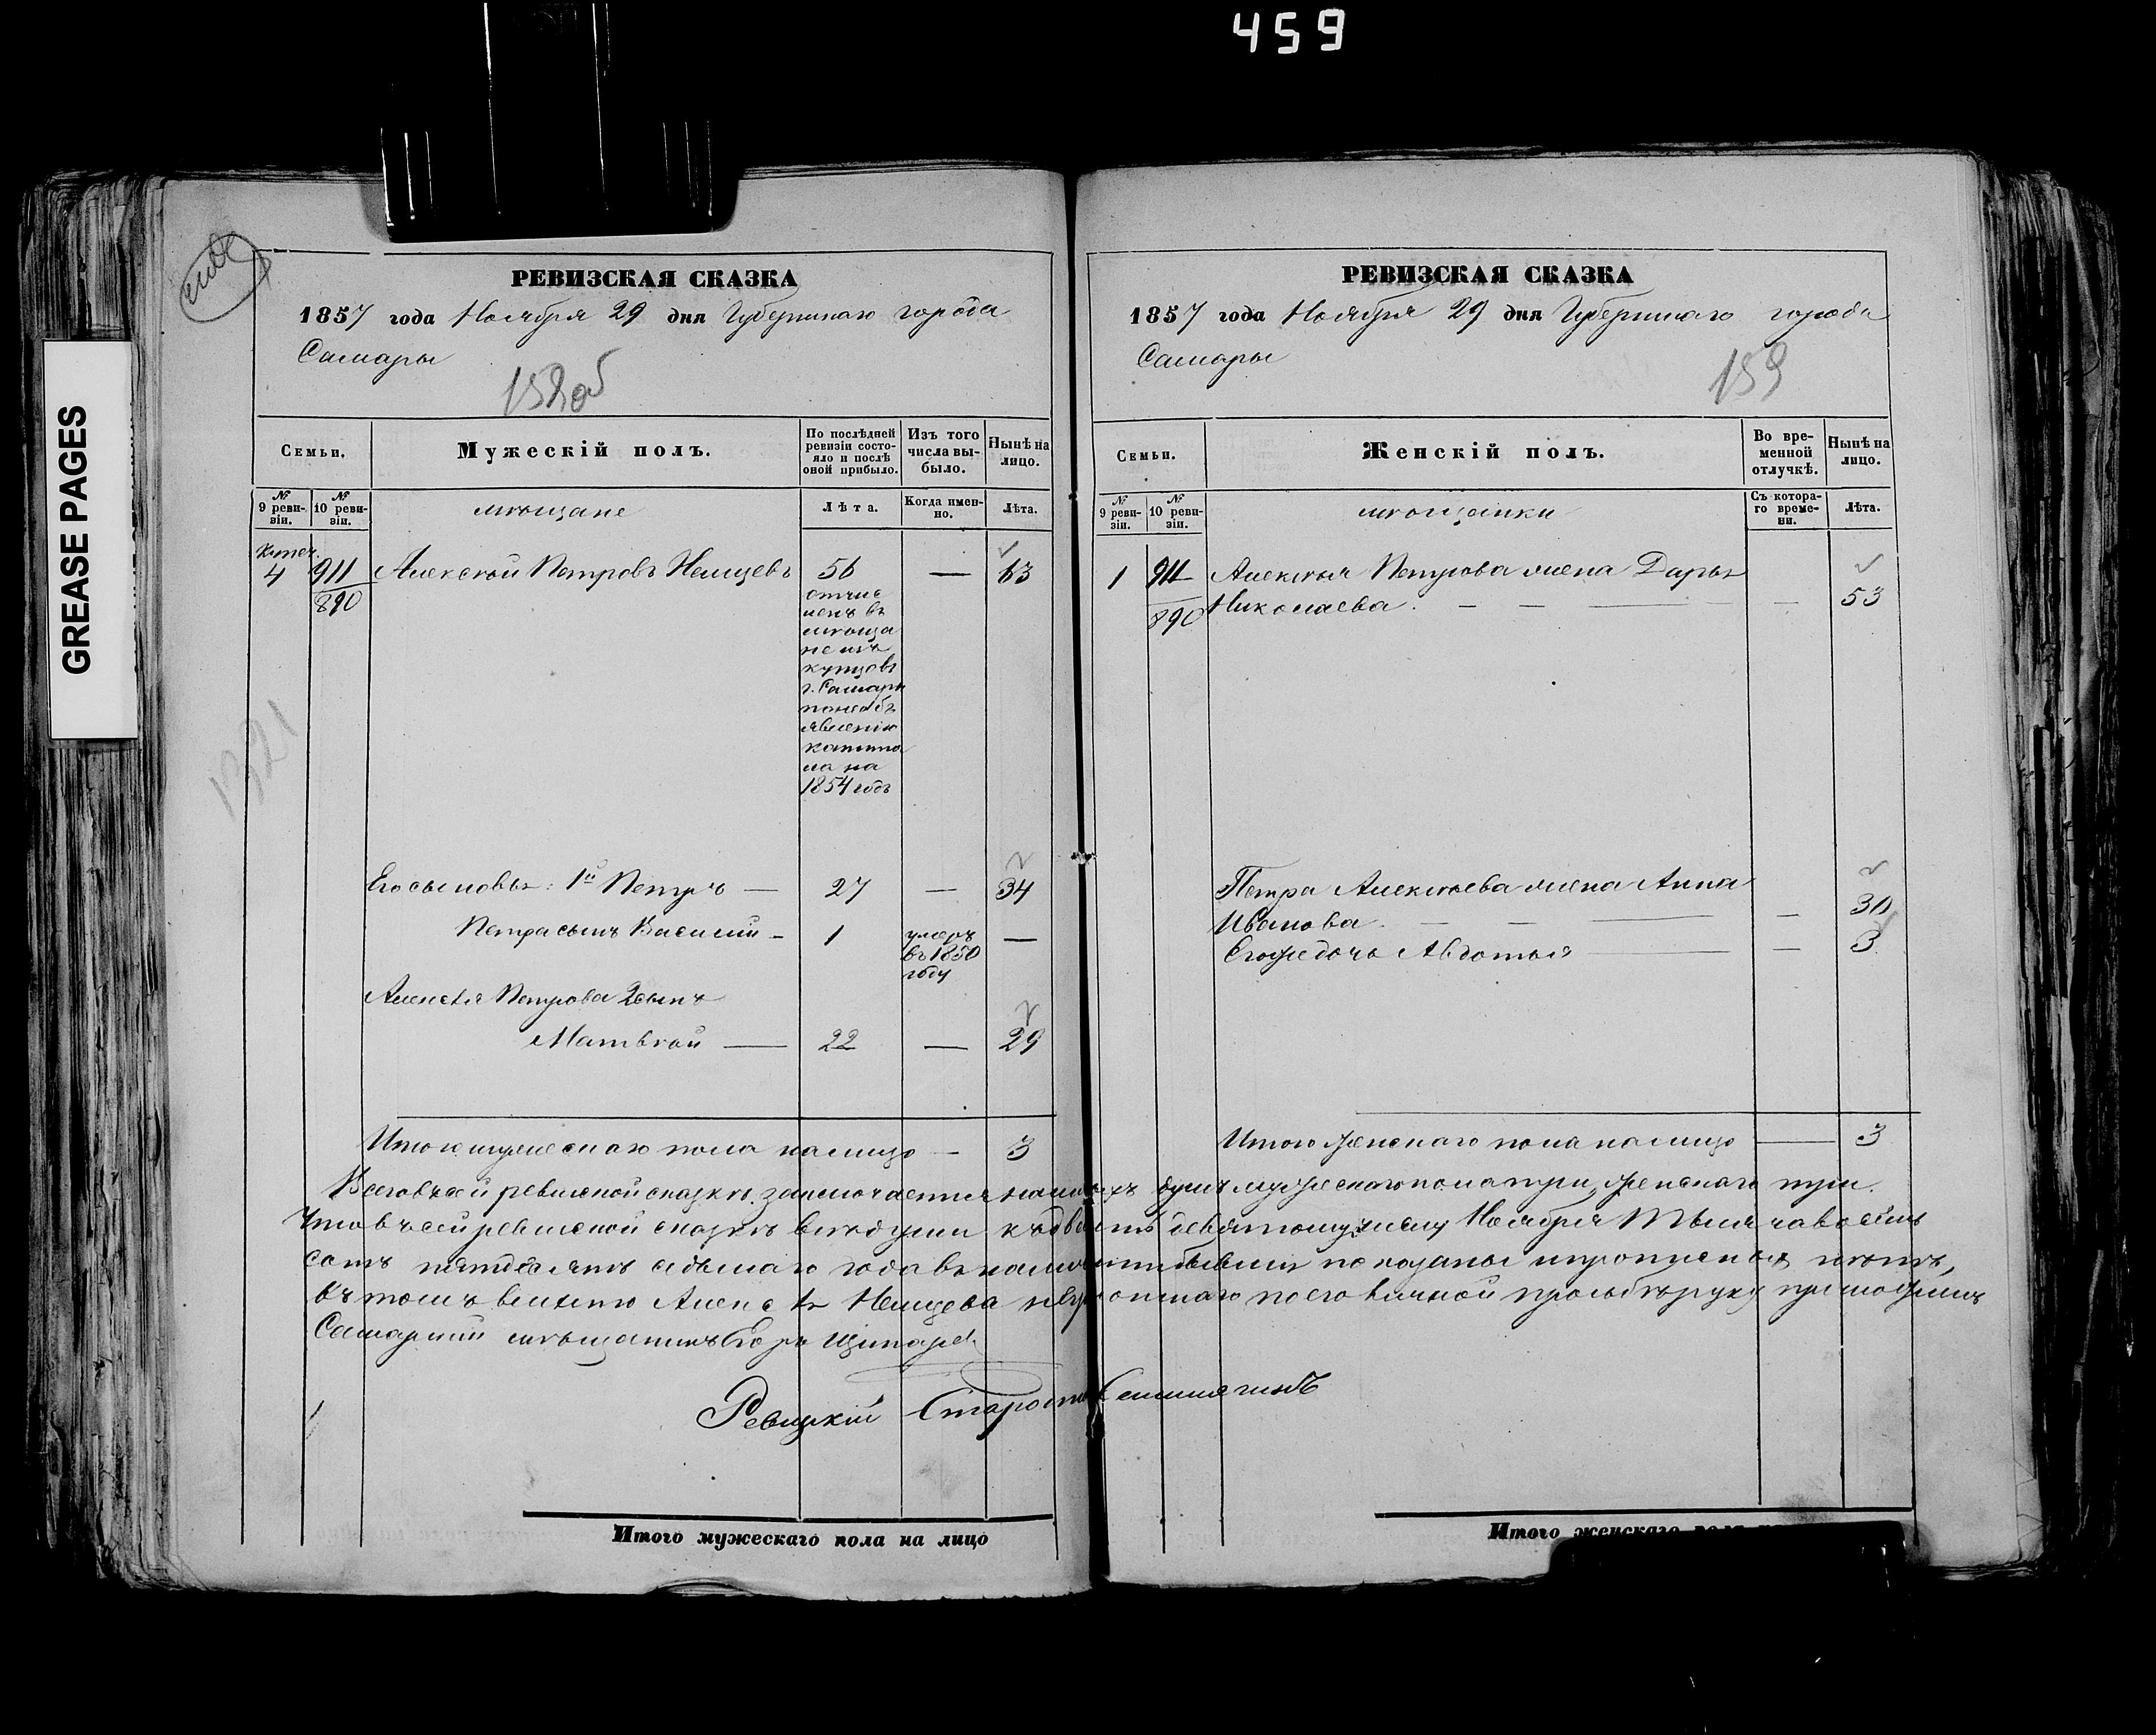 459
GREASE PAGES
РЕВИЗСКАЯ СКАЗКА
1857 года Ноября 29 дня Губернскаго города
Самары
158об
1321
Семьи.
Мужескій полъ.
По послѣдней ревизіи состояло и послѣ оной прибыло.
Изъ того числа выбыло.
Нынѣ на лицо.
№ 9 ревизіи.
№ 10 ревизіи.
мѣщане
Лѣта.
Когда именно.
Лѣта.
4 911 Алексѣй Петровъ Немцевъ 56 — 63
890
отчис
ленъ въ
мѣща
не изъ
купцовъ
г. Самары
по необъ
явленію
капита
ла на
1854 годъ
Его сыновья: 1й Петръ — 27 — 34
Петра сынъ Василій — 1 умеръ —
въ 1850
году
Алексѣя Петрова 2 сынъ
Матвѣй — 22 — 29
Итого мужескаго пола на лицо — 3
РЕВИЗСКАЯ СКАЗКА
1857 года Ноября 29 дня Губернскаго города
Самары
159
Семьи.
Женскій полъ.
Во временной отлучкѣ.
Нынѣ на лицо.
№ 9 ревизіи.
№ 10 ревизіи.
мѣщанки
Съ котораго времени.
Лѣта.
1 911 Алексѣя Петрова жена Дарья
890 Николаева. — — — — 53
Петра Алексѣева жена Анна
Иванова — — — — 30
Его же дочь Авдотья — — 3
Итого женскаго пола на лицо — 3
Всего въ сей ревизской сказкѣ заключается наличныхъ душъ мужескаго пола три, женскаго три.
Что въ сей ревизской сказкѣ всѣ души къ двадцать девятому числу Ноября тысяча восемь
сотъ пятьдесятъ седьмаго года въ наличности бывшія показаны и прописныхъ нѣтъ,
въ томъ вмѣсто Алексѣя Немцева неграмотнаго по его личной прозьбѣ руку приложилъ
Самарскій мѣщанинъ
Ревизскій Староста
Итого мужескаго пола на лицо
Итого женскаго пола